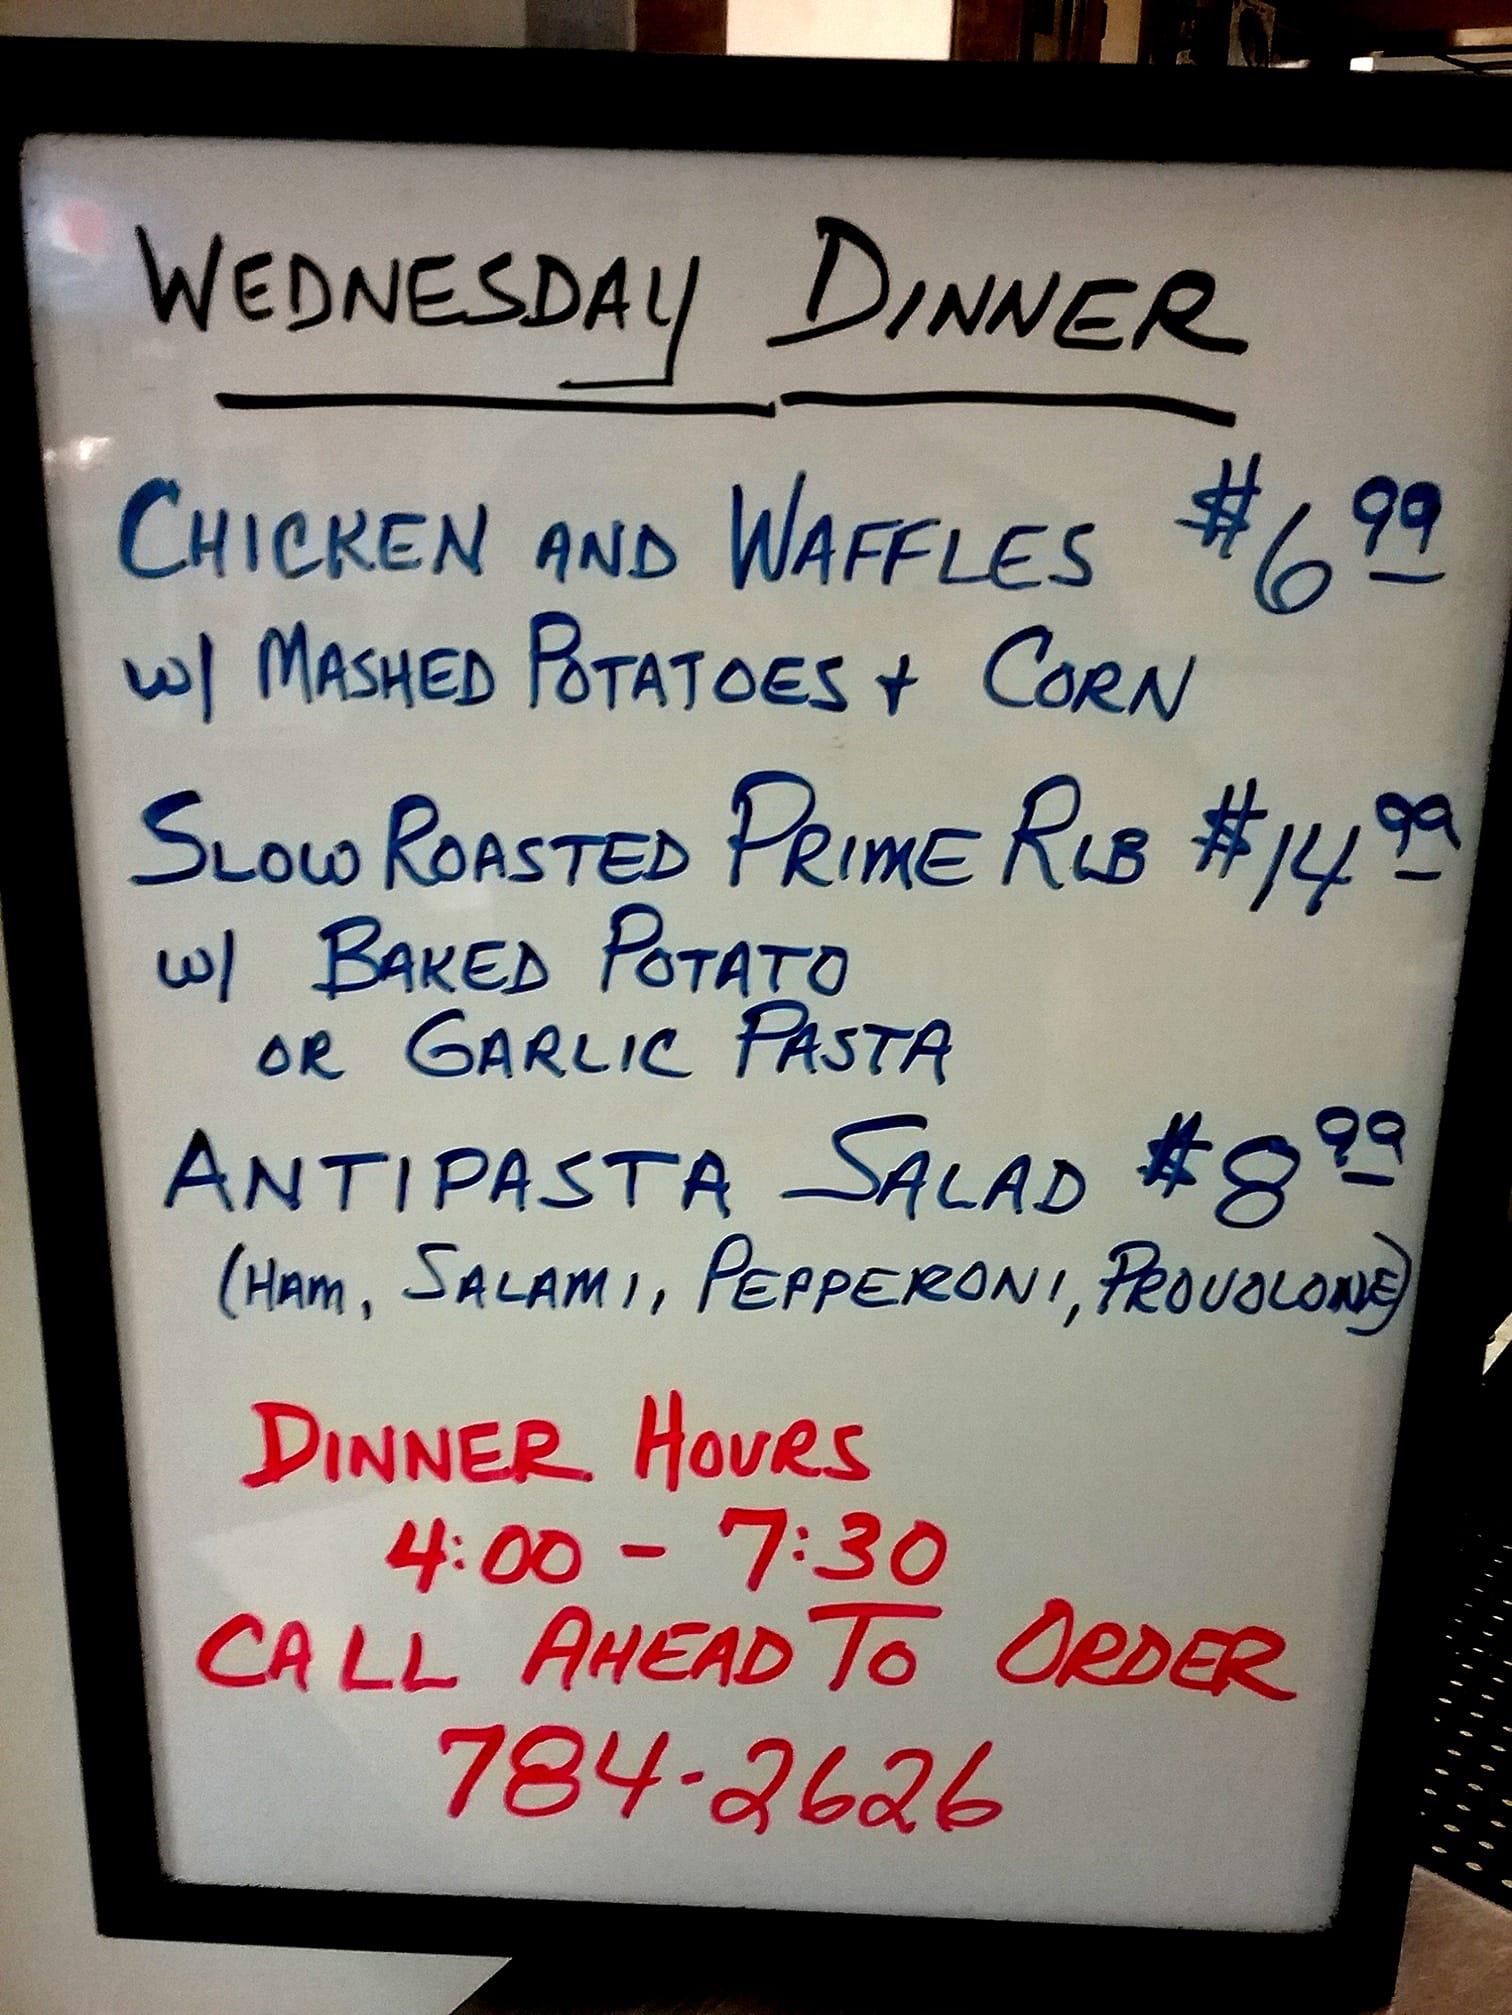 WEDNESDAY DINNER
CHICKEN AND WAFFLES $6.99
w/ MASHED POTATOES + CORN
SLOW ROASTED PRIME RIB $14.99
w/ BAKED POTATO
OR GARLIC PASTA
ANTIPASTA SALAD $8.99
(HAM, SALAMI, PEPPERONI, PROVOLONE)
DINNER HOURS
4:00 - 7:30
CALL AHEAD TO ORDER
784-2626